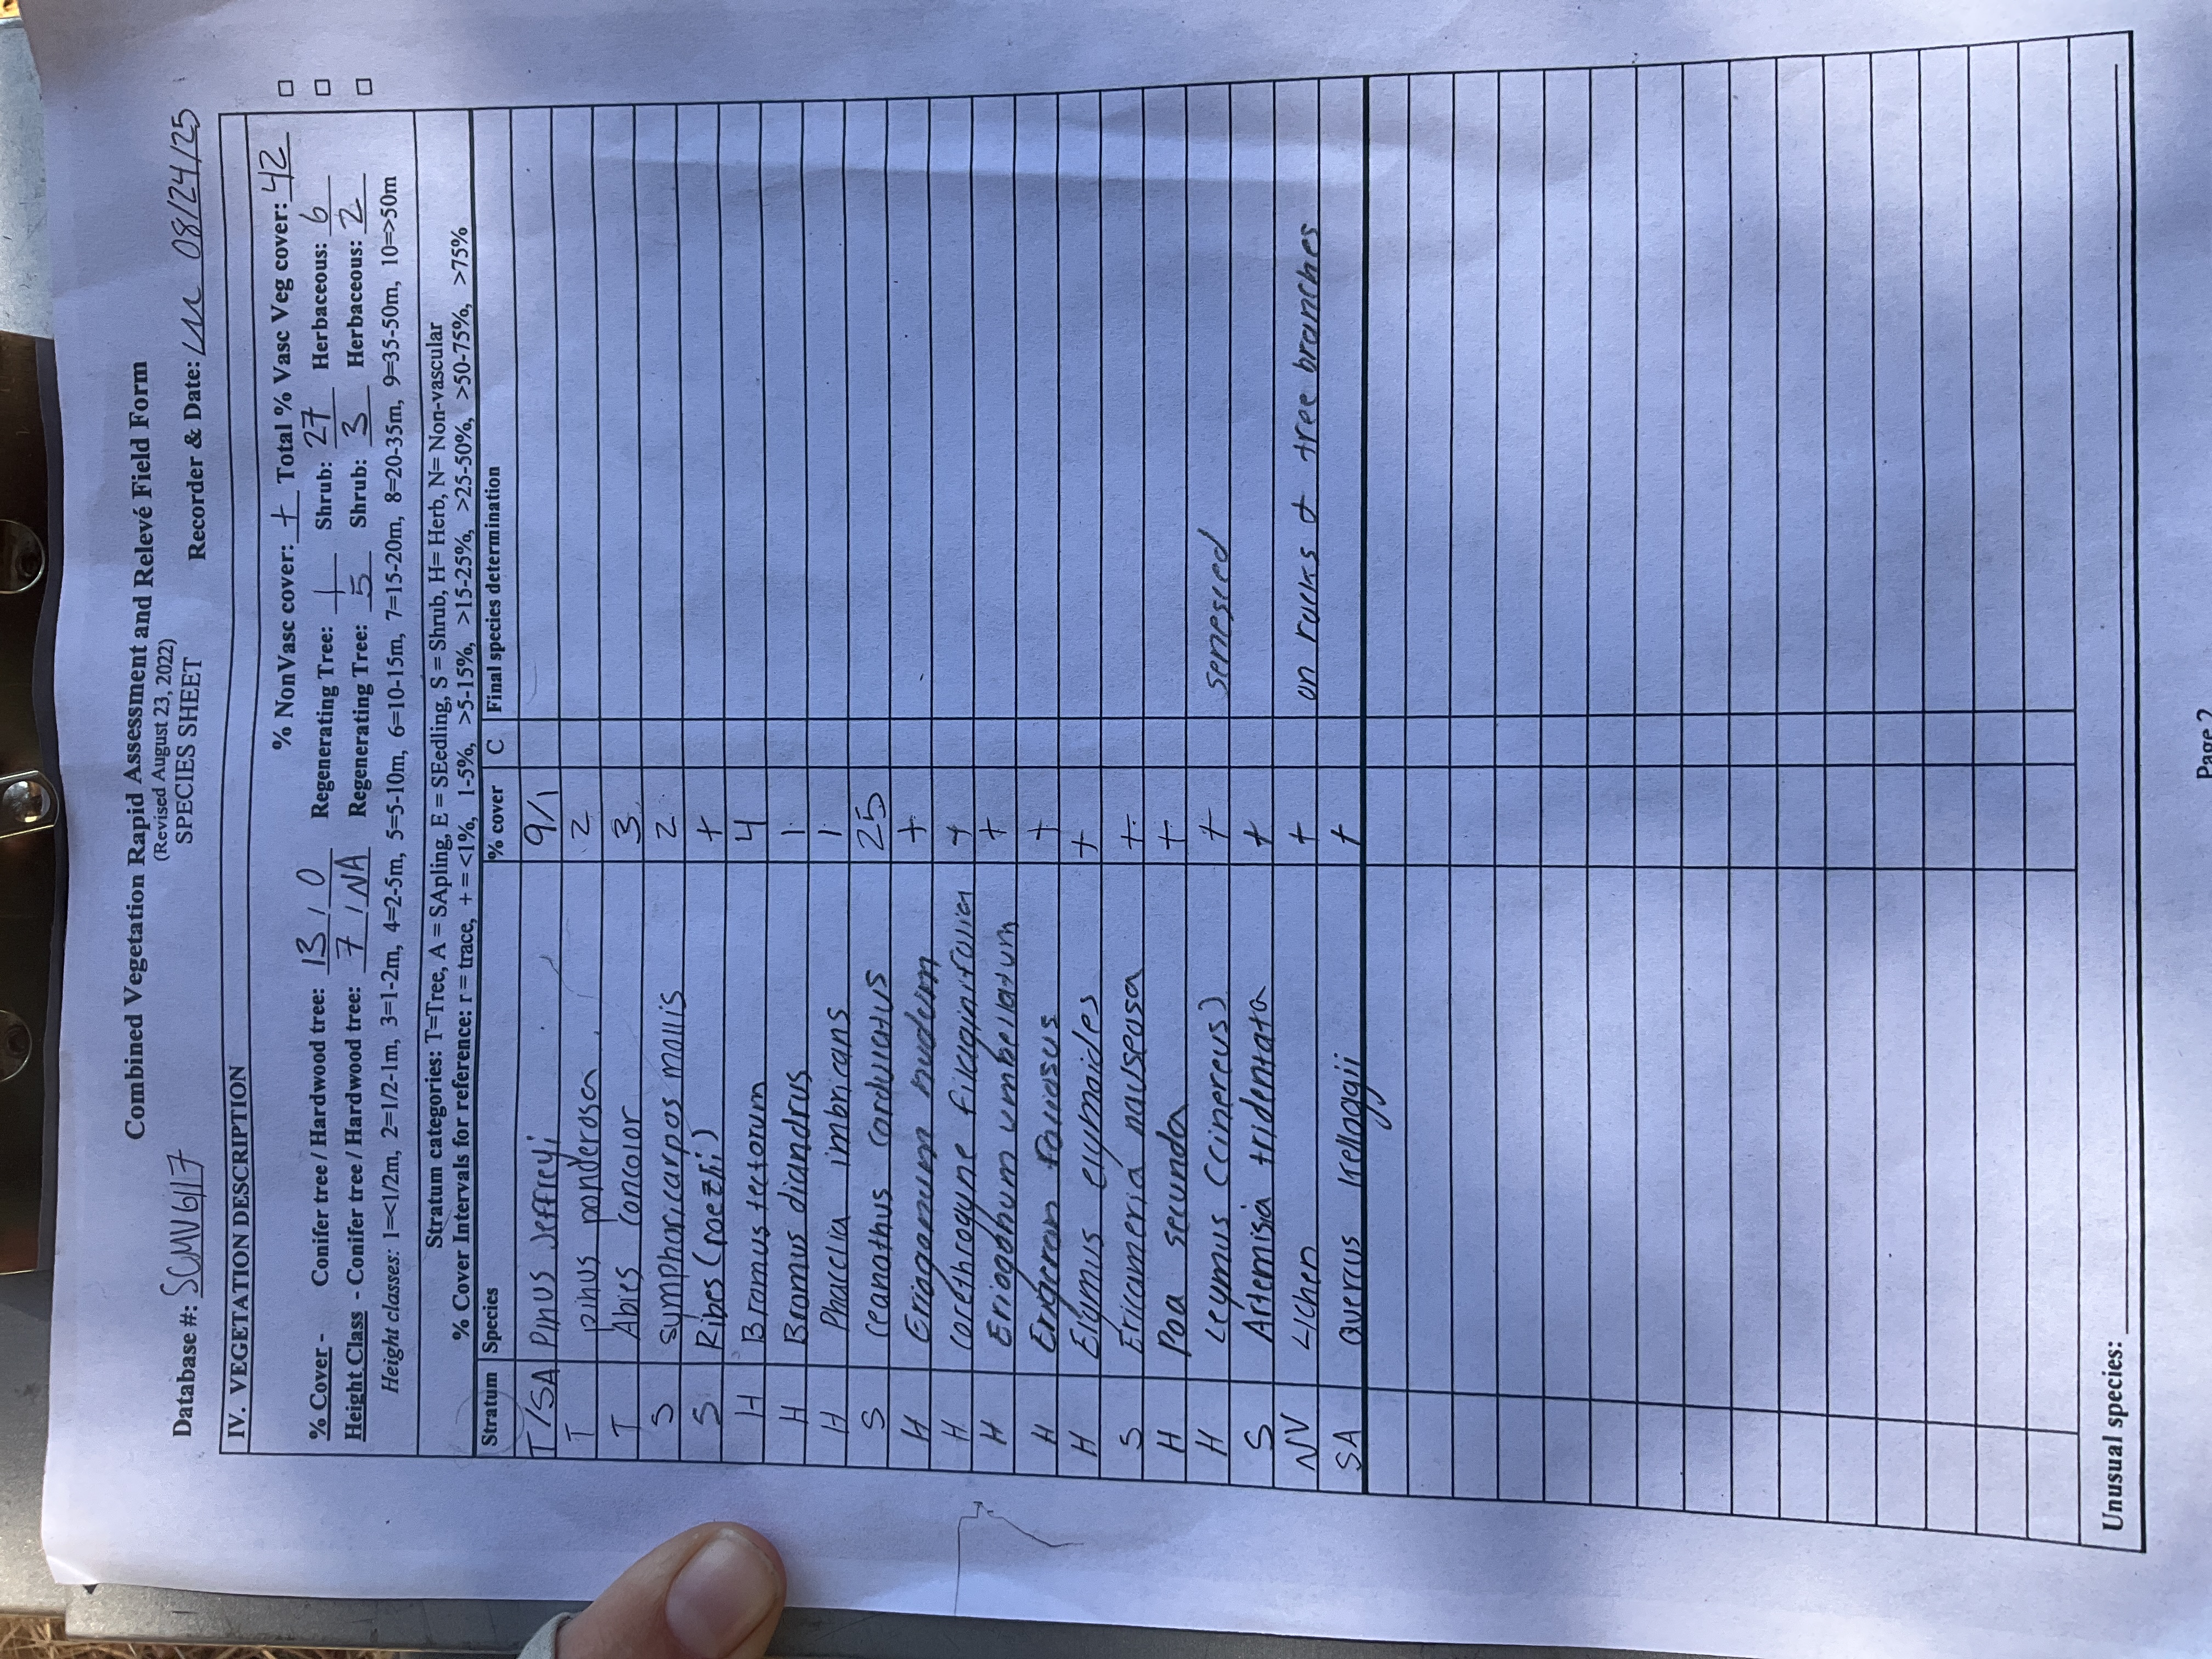 Combined Vegetation Rapid Assessment and Relevé Field Form
(Revised August 23, 2022)
SPECIES SHEET
Database #: SCMV6117 Recorder & Date: 08/24/25
IV. VEGETATION DESCRIPTION
% NonVasc cover: + Total % Vasc Veg cover: 42 □
% Cover - Conifer tree / Hardwood tree: 13 / 0 Regenerating Tree: 1 Shrub: 27 Herbaceous: 6 □
Height Class - Conifer tree / Hardwood tree: 7 / NA Regenerating Tree: 5 Shrub: 3 Herbaceous: 2 □
Height classes: 1=<1/2m, 2=1/2-1m, 3=1-2m, 4=2-5m, 5=5-10m, 6=10-15m, 7=15-20m, 8=20-35m, 9=35-50m, 10=>50m
Stratum categories: T=Tree, A = SApling, E = SEedling, S = Shrub, H= Herb, N= Non-vascular
% Cover Intervals for reference: r = trace, + = <1%, 1-5%, >5-15%, >15-25%, >25-50%, >50-75%, >75%
Stratum Species % cover C Final species determination
T/SA Pinus Jeffreyi 9/1
T pinus ponderosa 2
T Abies concolor 3
S symphoricarpos mollis 2
S Ribes (roezli) +
H Bromus tectorum 4
H Bromus diandrus 1
H Phacelia imbricans 1
S ceanothus cordulatus 25
H Eriogonum nudum +
H corethrogyne filaginifolia +
H Eriogonum umbellatum +
H Erigeron foliosus +
H Elymus elymoides +
S Ericameria nauseosa +
H Poa secunda +
H Leymus (cinereus) + senesced
S Artemisia tridentata +
NV Lichen + on rocks & tree branches
SA Quercus kelloggii +
Unusual species:
Page 2